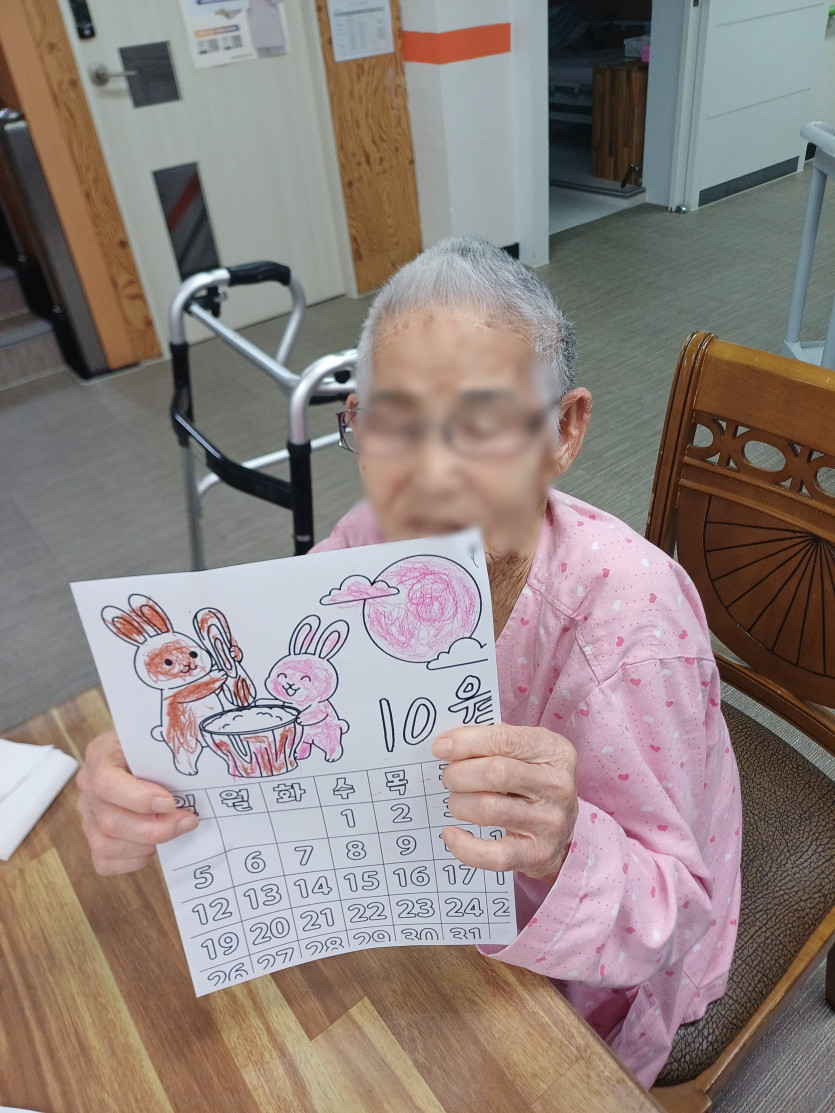 10월
일 월 화 수 목
1 2
5 6 7 8 9
12 13 14 15 16 17
19 20 21 22 23 24
26 27 28 29 30 31